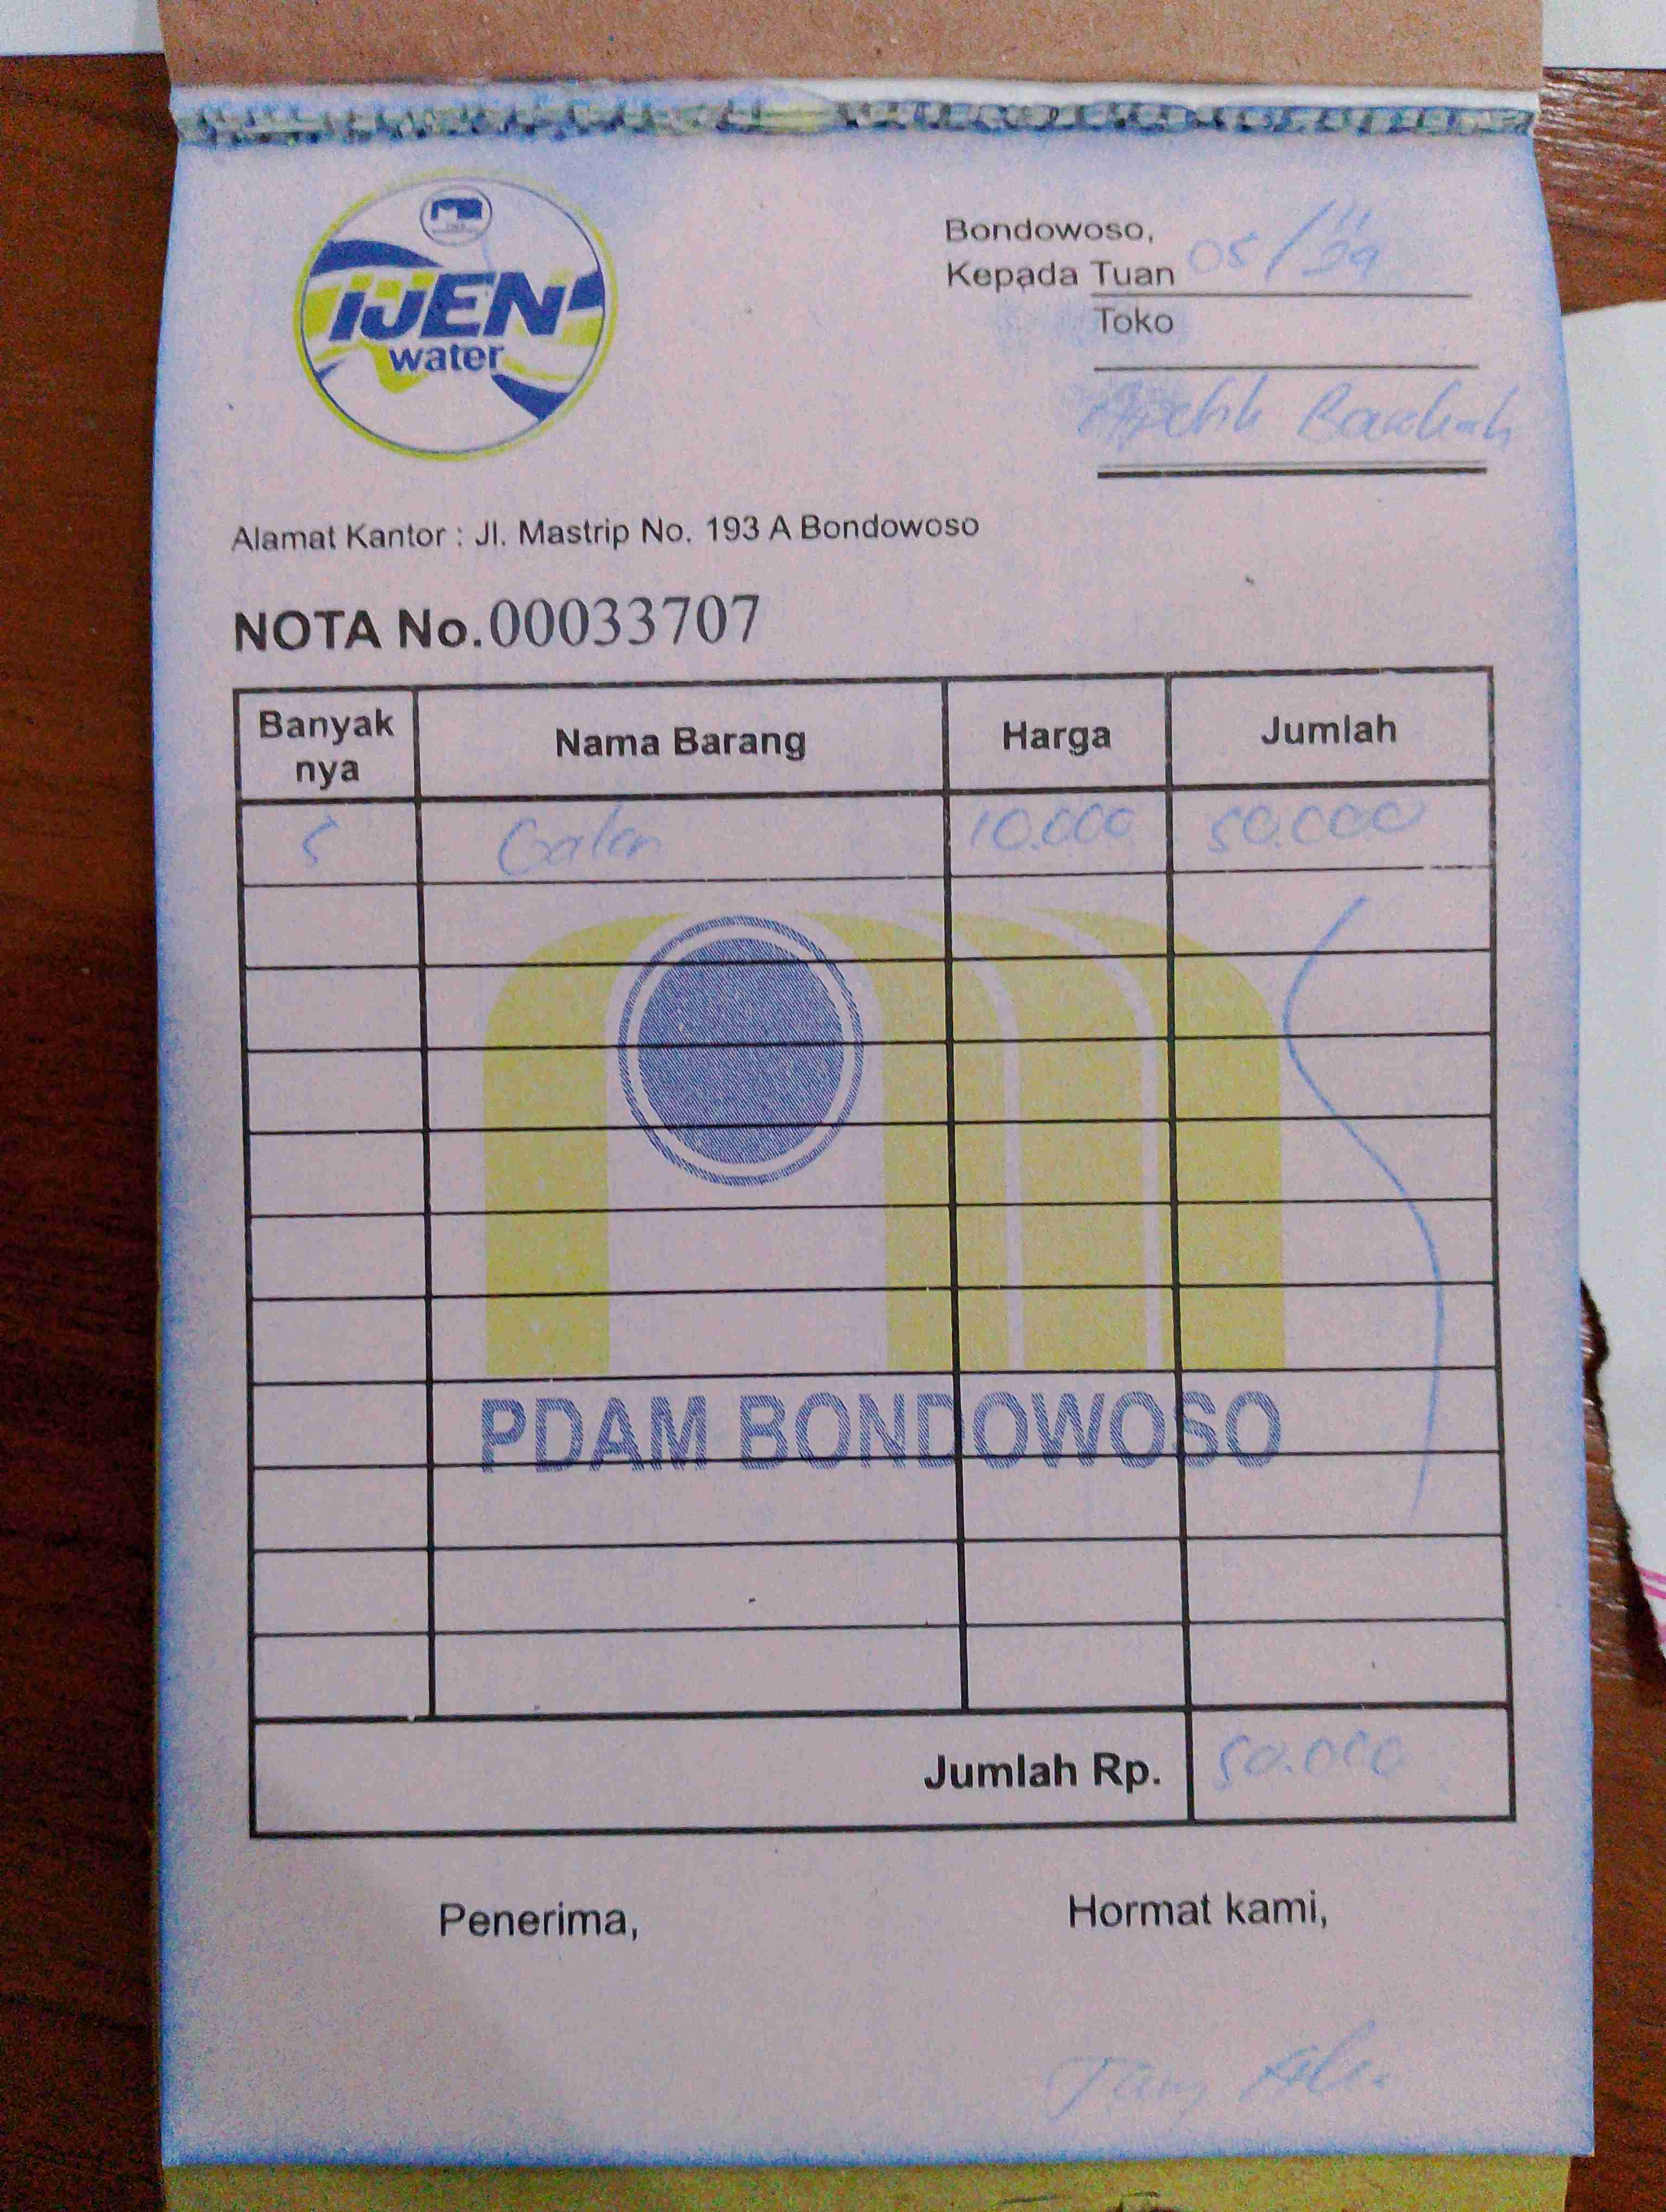 IJEN
water
Bondowoso,
05/11/24
Kepada Tuan
Toko
Apotik Barokah
Alamat Kantor : Jl. Mastrip No. 193 A Bondowoso
NOTA No. 00033707
Banyak nya Nama Barang Harga Jumlah
5 Galon 10.000 50.000
PDAM BONDOWOSO
Jumlah Rp. 50.000
Penerima, Hormat kami,